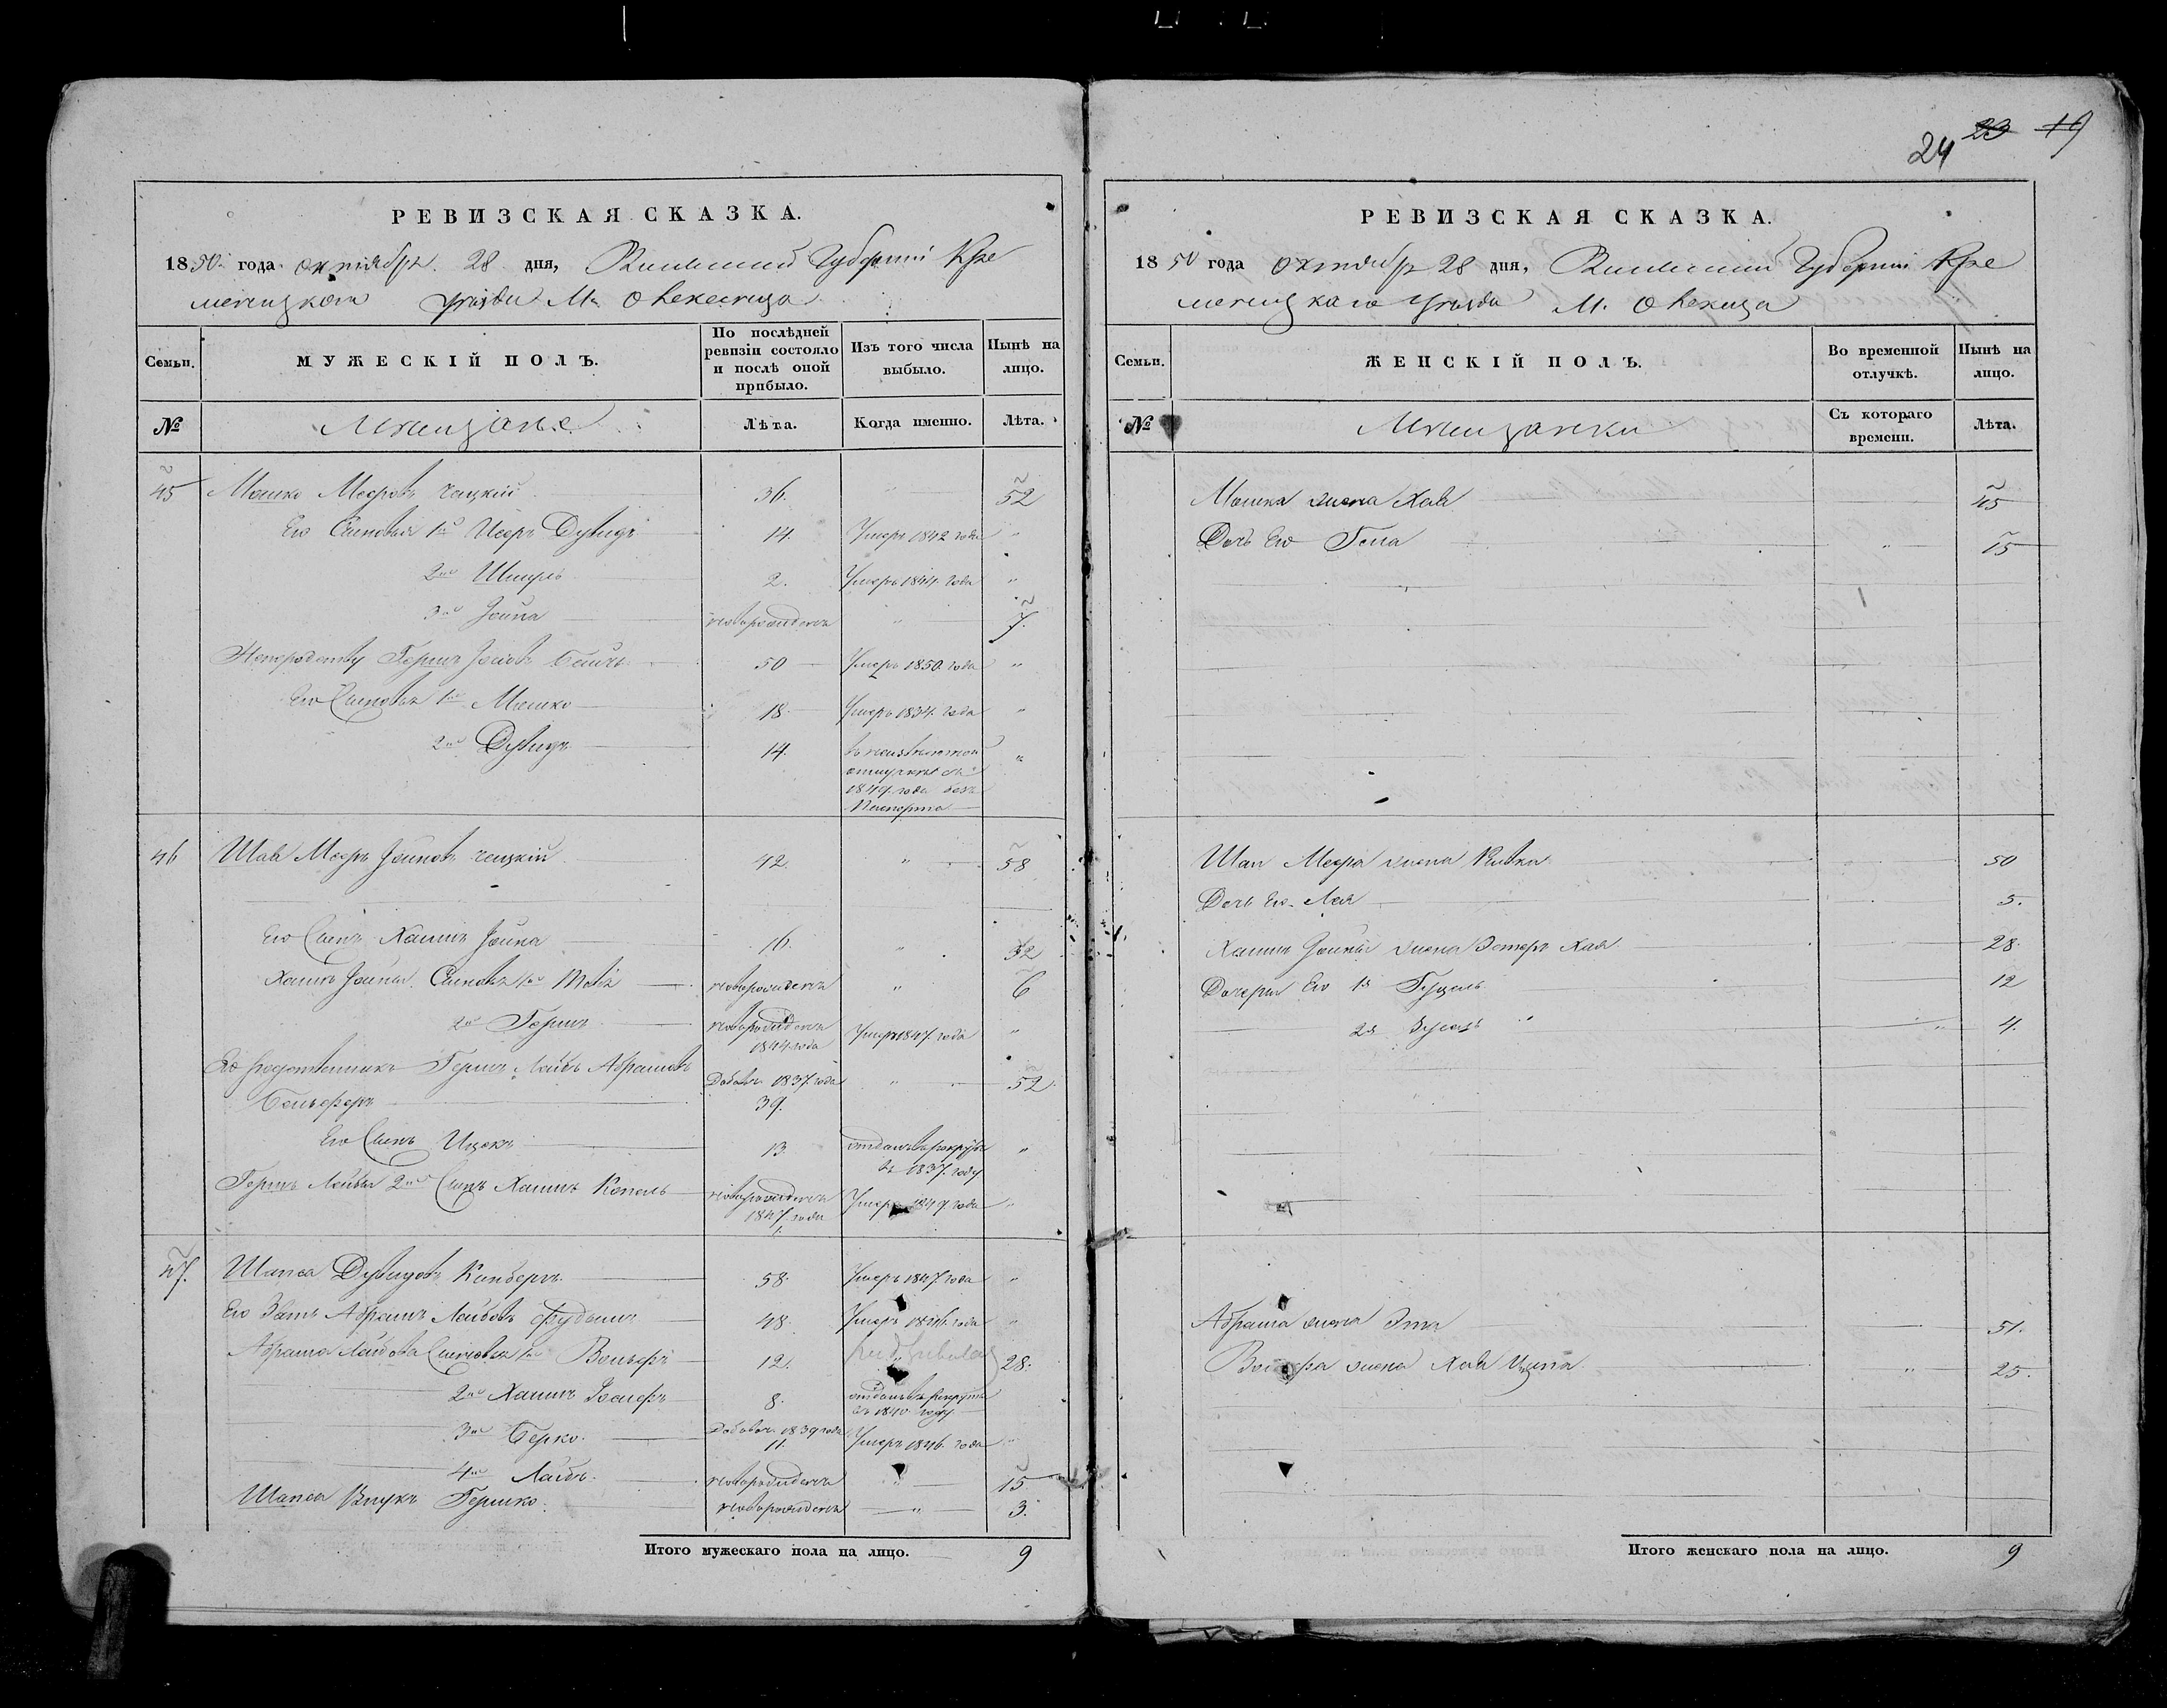 24 23 19
РЕВИЗСКАЯ СКАЗКА.
1850 года октября 28 дня, Волынской Губернии Кре
менецкого уезда М.
Семьи. МУЖЕСКІЙ ПОЛЪ. По послѣдней ревизіи состояло и послѣ оной прибыло. Изъ того числа выбыло. Нынѣ на лицо.
№ Мещане Лѣта. Когда именно. Лѣта.
45 Мошко Мееровъ 36. " 52
Его Сыновья 1й Дувидъ 14. Умеръ 1842 года "
2й Шмуль 2. Умеръ 1844 года "
3й Іойна новорожденъ " 7.
Гершъ 50 Умеръ 1850 года "
Его Сыновья 1й Мошко 18. Умеръ 1834 года "
2й Дувидъ 14. въ неизвестной "
отлучке съ
1849 года безъ
Паспорта
46 Мееръ Іойновъ 42. " 58
Его Сынъ Хаимъ Іойна 16. " 32
Хаимъ Іойны Сыновья 1й новорожденъ " 6
2й Гершъ новорожденъ Умеръ 1847 года "
1844 года
Его родственникъ Гершъ Лейбъ Абрамовъ Добавл. 1837 года " 52
39.
Его Сынъ Ицекъ 13. отданъ въ рекруты "
въ 1837 году
Гершъ Лейбы 2й Сынъ Хаимъ Копель новорожденъ Умеръ 1849 года "
1847 года
47. Шапса Дувидовъ 58. Умеръ 1847 года "
Его Зять Абрамъ Лейбовъ 48. Умеръ 1846 года "
Абрама Лейбова Сыновья 1й Вольфъ 12. " 28.
2й Хаимъ Іосифъ 8. отданъ въ рекруты
въ 1840 году
3й Берко. Добавл. 1839 года Умеръ 1846 года "
11.
4й Лейбъ. новорожденъ " 15
Шапса Внукъ Гершко. новорожденъ " 3.
Итого мужескаго пола на лицо. 9
РЕВИЗСКАЯ СКАЗКА.
1850 года октября 28 дня, Волынской Губернии Кре
менецкаго уезда М.
Семьи. ЖЕНСКІЙ ПОЛЪ. Во временной отлучкѣ. Нынѣ на лицо.
№ Мещанки Съ котораго времени. Лѣта.
Мошка жена Хая 45
Дочь Его " 15
Меера жена Ривка 50
Дочь Его Лея 5.
Хаимъ Іойны жена Эстеръ Хая 28.
Дочери Его 1я 12
2я " 4.
Абрама жена 51.
Вольфа жена Хая Ципа " 25.
Итого женскаго пола на лицо. 9